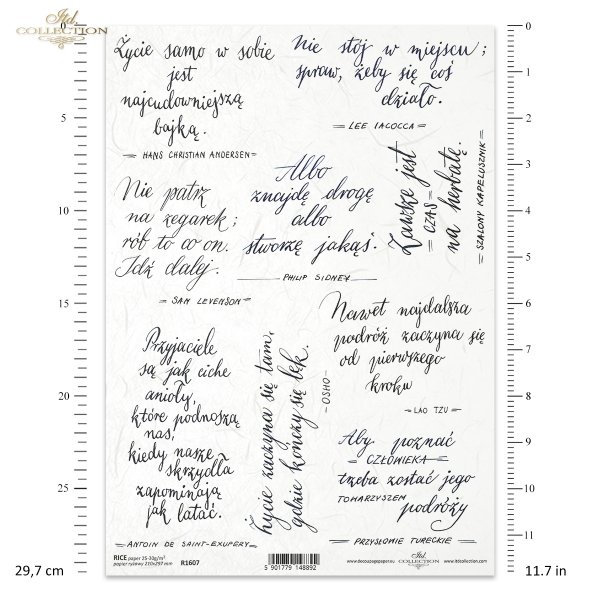 Itd.
COLLECTION
Życie samo w sobie
jest
najcudowniejszą
bajką.
HANS CHRISTIAN ANDERSEN
Nie stój w miejscu;
spraw, żeby się coś
działo.
LEE IACOCCA
Albo
znajdę drogę
albo
stworzę jakąś.
PHILIP SIDNEY
Zawsze jest
CZAS
na herbatę.
SZALONY KAPELUSZNIK
Nie patrz
na zegarek;
rób to co on.
Idź dalej.
SAM LEVENSON
Nawet najdalsza
podróż zaczyna się
od pierwszego
kroku
LAO TZU
Przyjaciele
są jak ciche
anioły,
które podnoszą
nas,
kiedy nasze
skrzydła
zapominają
jak latać.
ANTOIN DE SAINT-EXUPERY
Życie zaczyna się tam,
gdzie kończy się lęk.
OSHO
Aby poznać
CZŁOWIEKA
trzeba zostać jego
TOWARZYSZEM
podróży
PRZYSŁOWIE TURECKIE
RICE paper 25-30g/m²
papier ryżowy 210x297 mm
R1607
5 901779 148892
www.decoupagepaper.eu
Itd.
COLLECTION
www.itdcollection.com
0
5
10
15
20
25
29,7 cm
0
1
2
3
4
5
6
7
8
9
10
11
11.7 in